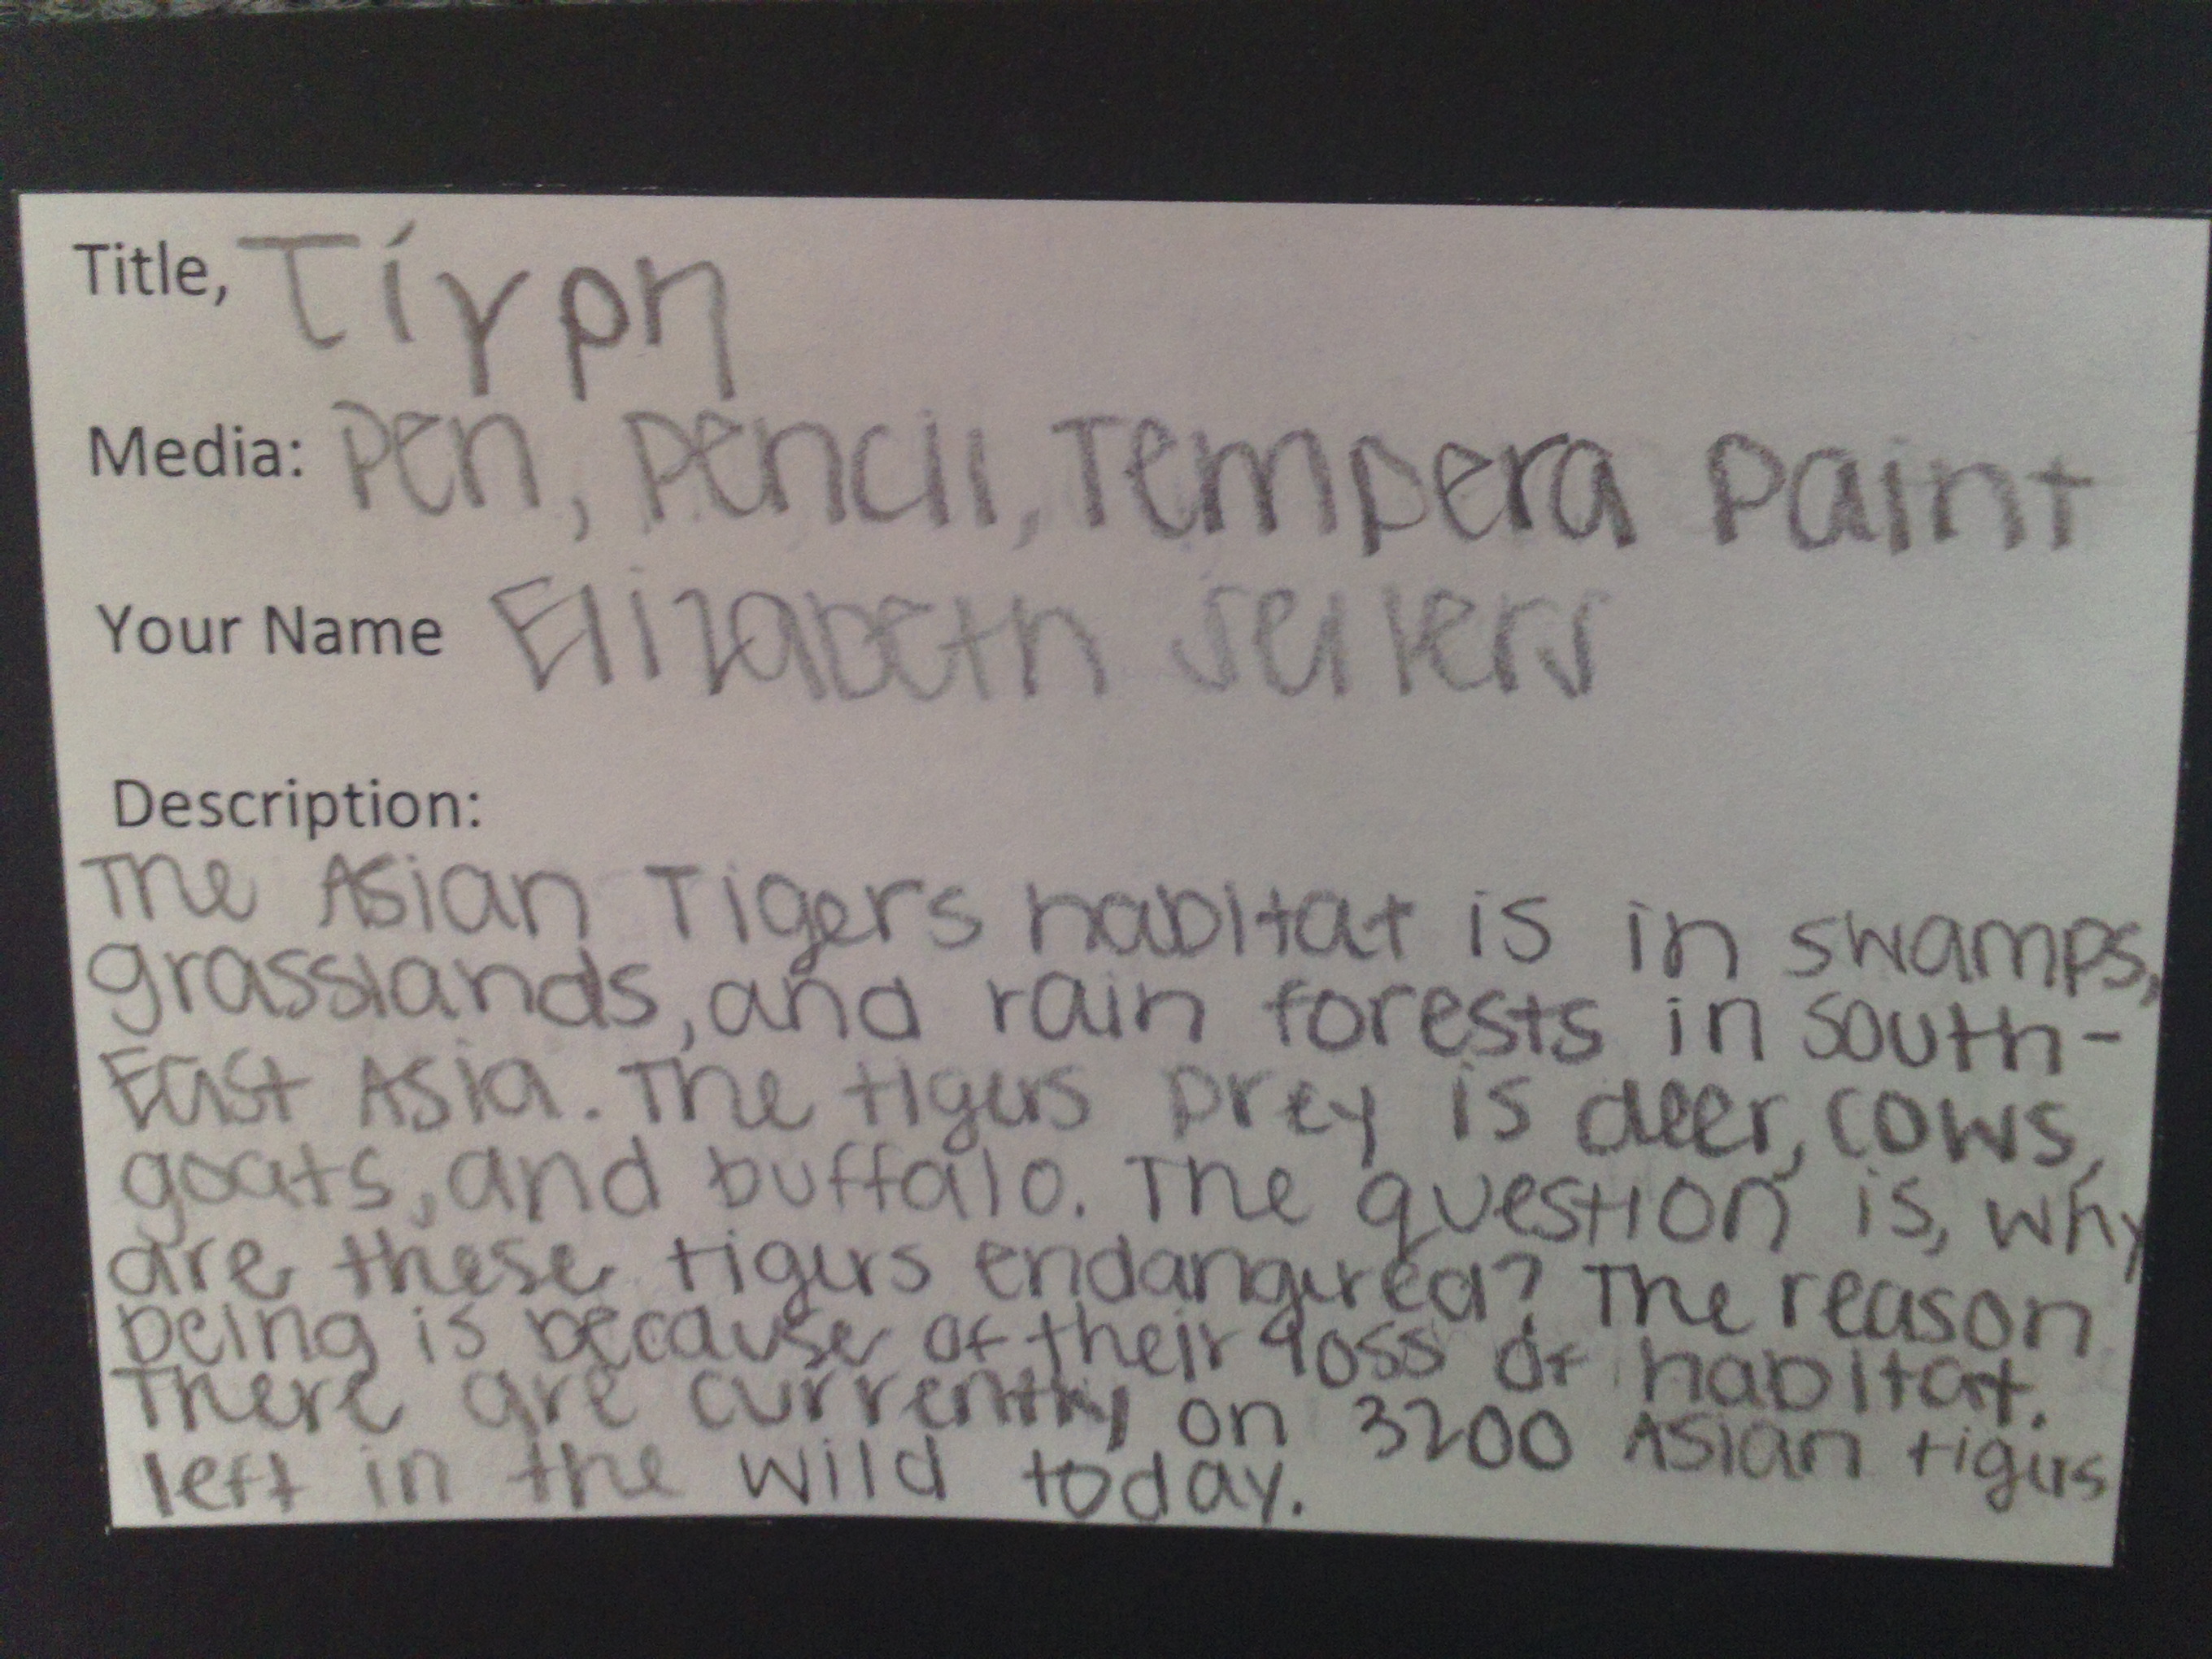 Title, Τίγρη
Media: Pen, Pencil, Tempera Paint
Your Name Elizabeth Sellers
Description:
The Asian Tigers habitat is in swamps,
grasslands, and rain forests in South-
East Asia. The tigers prey is deer, cows,
goats, and buffalo. The question is, why
are these tigers endangered? The reason
being is because of their loss of habitat.
There are currently on 3200 Asian tigers
left in the wild today.